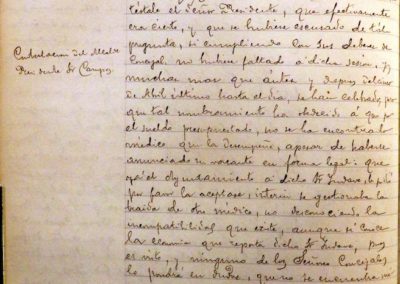 téstale el Señor Presidente, que efectivamente
era cierto, y que se hubiese escusado de tal
pregunta, si cumpliendo con sus deberes de
Concejal, no hubiese faltado á dicha sesion, y
muchas mas que ántes y despues del
de Abril último hasta el dia, se han celebrado, por
que tal nombramiento ha obedecido á que por
el sueldo presupuestado, no se ha encontrado
médico que la desempeñe, apesar de haberse
anunciado su vacante en forma legal: que
el Ayuntamiento á dicho Sr
por favor la aceptase, interin se gestionaba la
traida de otro médico, no desconociendo la
incompatibilidad que existe, aunque si conoce
la economia que reporta dicho Sr
es visto, y ninguno de los Señores Concejales
lo pondrá en duda, que no se encuentra
Contestacion del Alcalde
Presidente Sr Campos